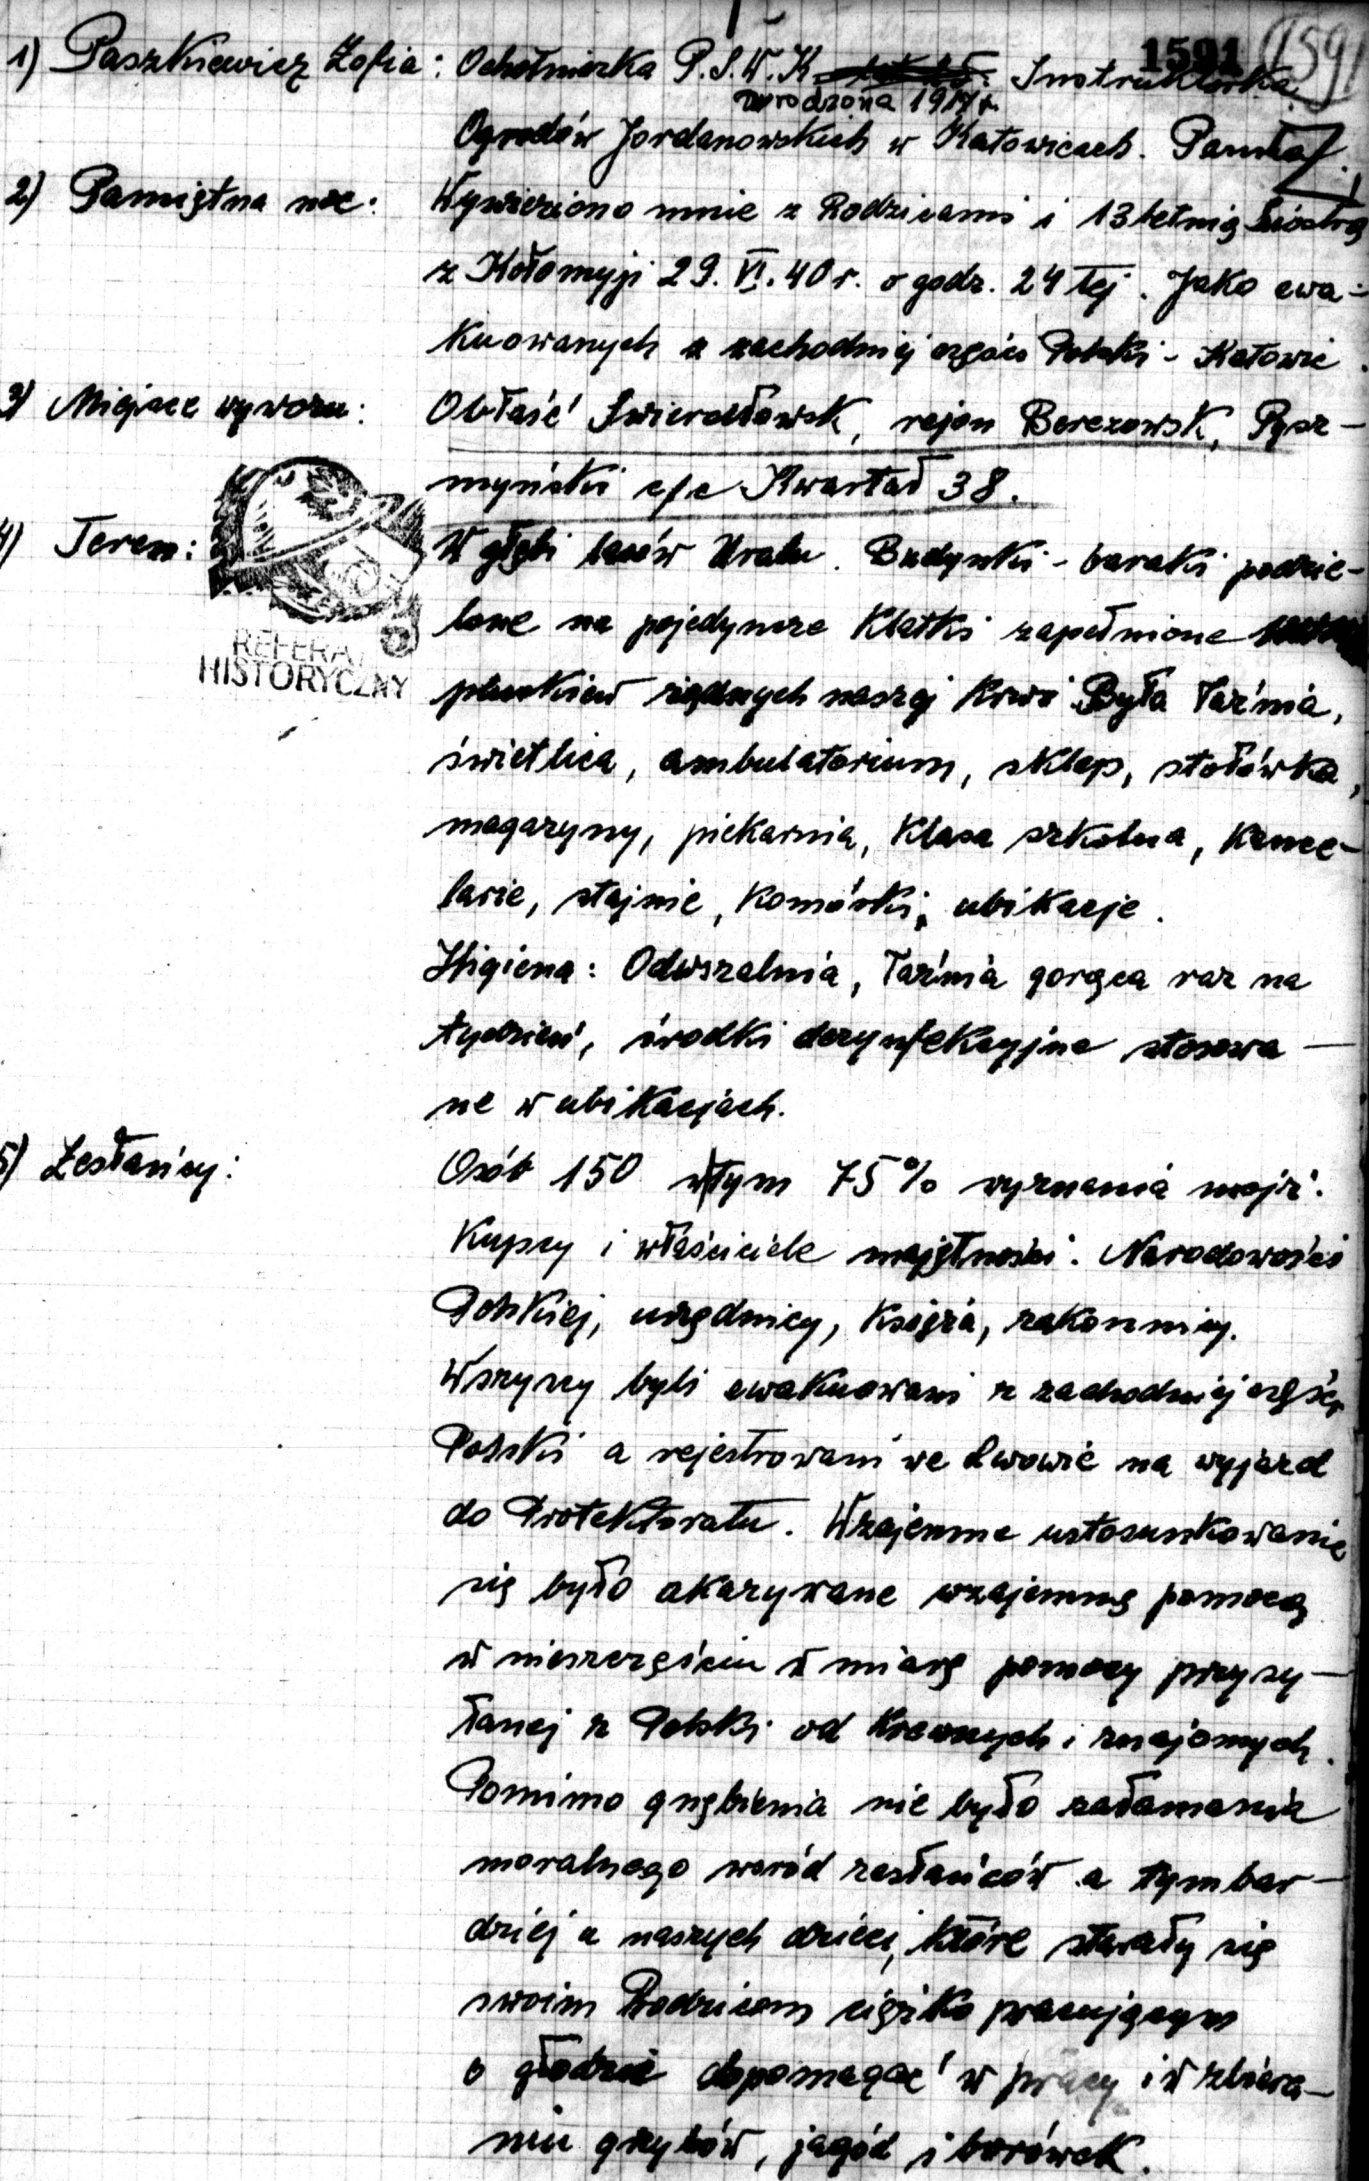 1591 1591
1) Paszkiewicz Zofia: Ochotniczka P.S.W.K Instruktorka
urodzona 1917 r.
Ogrodów Jordanowskich w Katowicach. Panna
Z.
2) Pamiętna noc: Wywieziono mnie z Rodzicami i 13 letnią siostrą
z Kołomyji 29. VI. 40 r. o godz. 24 tej. Jako ewa-
kuowanych z zachodniej części Polski - Katowic.
3) Miejsce wywozu: Obłaść Swierdłowsk, rejon Berezowsk, Pysz-
myński c/c Kwartał 38.
4) Teren: W głębi lasów Uralu. Budynki - baraki podzie-
lone na pojedyncze Klatki zapełnione
pluskiew rządnych naszej Krwi. Była łaźnia,
świetlica, ambulatorium, sklep, stołówka,
magazyny, piekarnia, Klasa szkolna, Kance-
larie, stajnie, Komórki, ubikacje.
REFERAT
HISTORYCZNY
Higiena: Odwszalnia, łaźnia gorąca raz na
tydzień, środki dezynfekcyjne stosowa-
ne w ubikacjach.
5) Zesłańcy: Osób 150 w tym 75% wyznania mojż.
Kupcy i właściciele majętności. Narodowości
Polskiej, urzędnicy, Księża, zakonnicy.
Wszyscy byli ewakuowani z zachodniej części
Polski a rejestrowani we Lwowie na wyjazd
do Protektoratu. Wzajemne ustosunkowanie
się było okazywane wzajemną pomocą
w nieszczęściu w miarę pomocy przysy-
łanej z Polski od Krewnych i znajomych.
Pomimo gnębienia nie było załamania
moralnego wśród zesłańców a tymbar-
dziej u naszych dzieci, które starały się
swoim Rodzicom ciężko pracującym
o głodzie dopomagać w pracy i w zbiera-
niu grzybów, jagód i borówek.